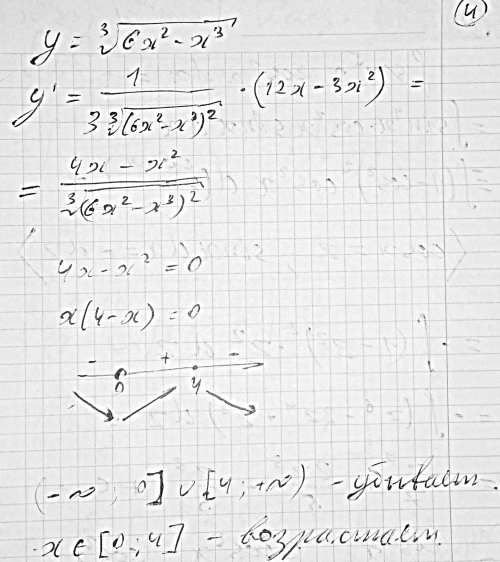 4
y = ∛(6x² - x³)
y' = 1 / (3∛(6x² - x³)²) · (12x - 3x²) =
= (4x - x²) / ∛(6x² - x³)²
4x - x² = 0
x(4 - x) = 0
- + -
0 4
(-∞; 0] ∪ [4; +∞) - убывает.
x ∈ [0; 4] - возрастает.